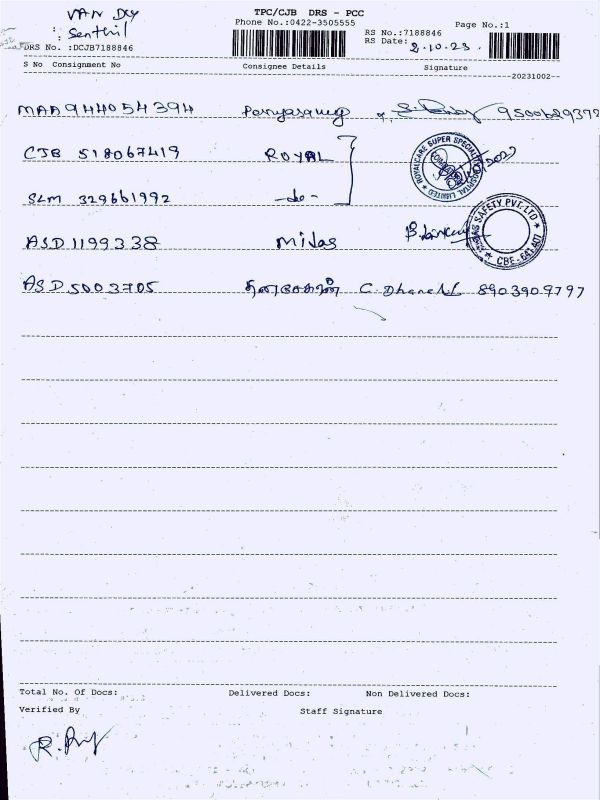 VAN Dly
TPC/CJB DRS - PCC
Page No.:1
: Senthil
Phone No.:0422-3505555
RS No.:7188846
DRS No. :DCJB7188846
RS Date: 2.10.23.
S No Consignment No Consignee Details Signature
20231002--
MAA944054394
CJB 518067419 ROYAL
ROYALCARE SUPER SPECIALITY HOSPITAL LIMITED
SLM 329661992 -do-
ASD1199338 Midas
MIDAS SAFETY PVT. LTD
CBE-641 407
ASD5003705 தனசேகரன் 8903909797
Total No. Of Docs: Delivered Docs: Non Delivered Docs:
Verified By Staff Signature